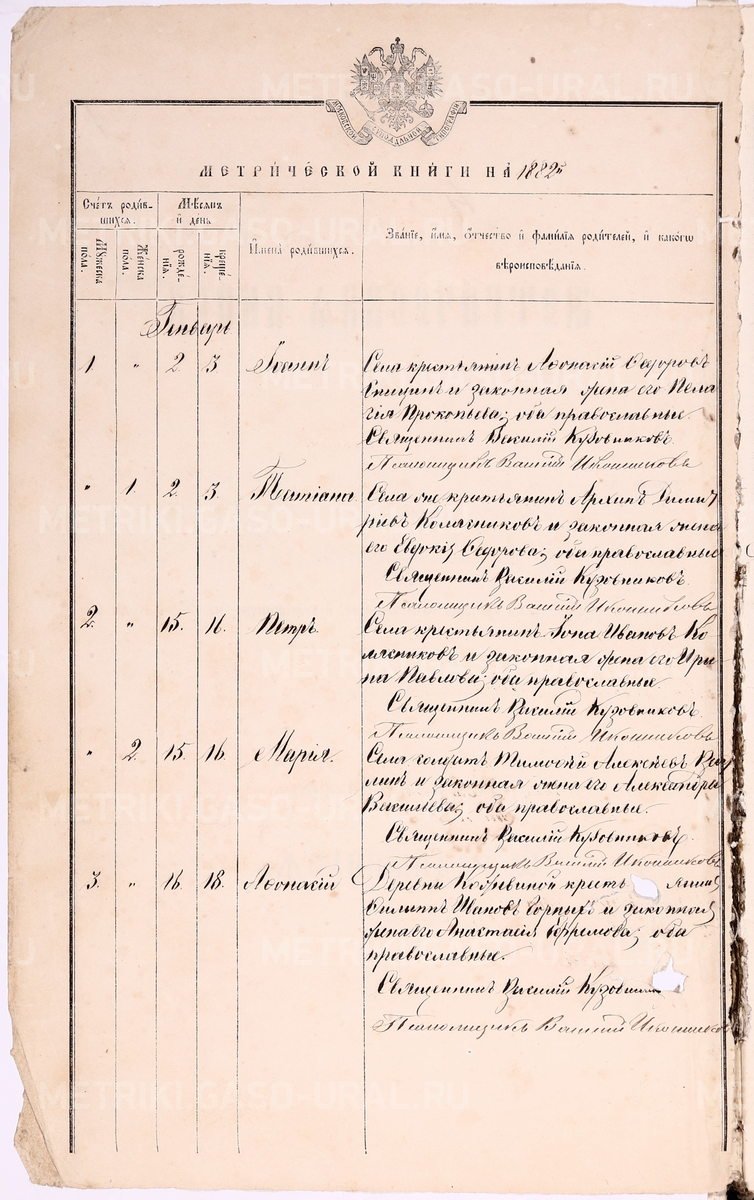 МОСКОВСКОЙ СѴНОДАЛЬНОЙ ТИПОГРАФІИ
МЕТРИЧЕСКОЙ КНИГИ НА 1882 г.
Счетъ родившихся.
Мѣсяцъ и день
Мꙋжеска пола.
Женска пола.
рожденїя.
крещенїя.
Имена родившихся.
Званїе, имя, отчество и фамилїя родителей, и какогѡ
вѣроисповѣданїя.
Генварь
1 " 2. 3. Іоаннъ
Села крестьянинъ Аѳонасій Ѳедоровъ
Спицинъ и законная жена его Пела-
гія Прокопьева; оба православные.
Священникъ Василій Кузовниковъ.
Псаломщикъ Василій Иконниковъ
" 1. 2. 3. Татіана
Села же крестьянинъ Архипъ Димит-
ріевъ Колясниковъ и законная жена
его Евдокія Ѳедорова; оба православные
Священникъ Василій Кузовниковъ.
Псаломщикъ Василій Иконниковъ
2. " 15. 16. Петръ.
Села крестьянинъ Іона Ивановъ Ко-
лясниковъ и законная жена его Ири-
на Павлова; оба православные.
Священникъ Василій Кузовниковъ.
Псаломщикъ Василій Иконниковъ
" 2. 15. 16. Марія.
Села солдатъ Тимоѳей Алексѣевъ
и законная жена его Александра
Васильева; оба православные.
Священникъ Василій Кузовниковъ.
Псаломщикъ Василій Иконниковъ
3. " 16. 18. Аѳонасій
Деревни крестьянинъ
Филиппъ Ивановъ Горныхъ и законная
жена его Анастасія Ефремова; оба
православные.
Священникъ Василій Кузовниковъ
Псаломщикъ Василій Иконниковъ
METRIKI.GASO-URAL.RU